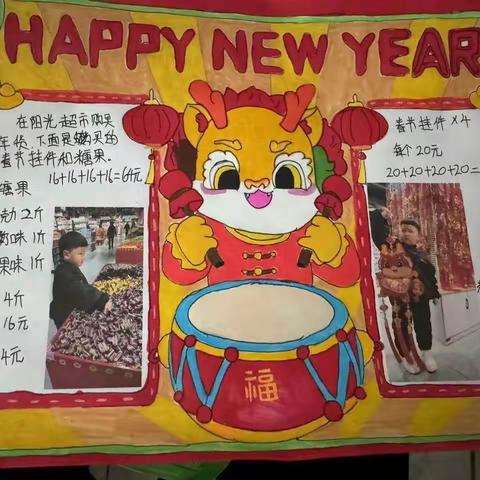 HAPPY NEW YEAR
在阳光超市购买
年货.下面是购买的
春节挂件和糖果.
16+16+16+16=64元
糖果
2斤
味1斤
果味1斤
4斤
16元
4元
春节挂件×4
每个20元
20+20+20+20=
福